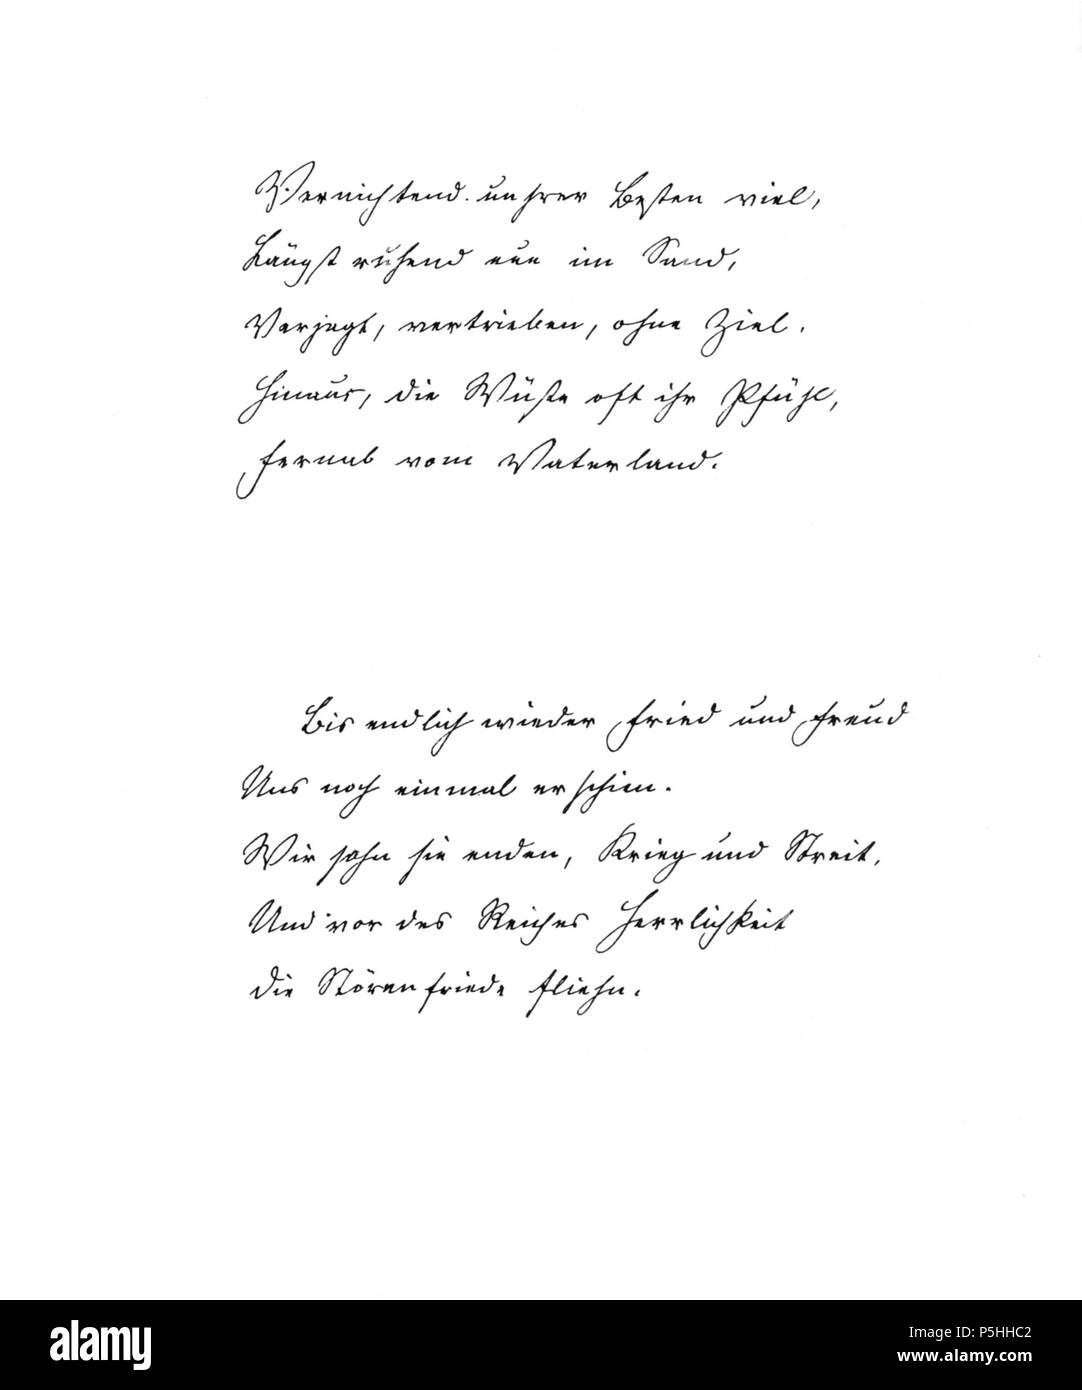 Vernichtend unsrer Besten viel,
Längst ruhend nun im Sand,
Verjagt, vertrieben, ohne Ziel.
Hinaus, die Wüste oft ihr Pfühl,
Fernab vom Vaterland.
Bis endlich wieder Fried und Freud
Uns noch einmal erschien.
Wir sahn sie enden, Krieg und Streit,
Und vor des Reiches Herrlichkeit
die Störenfriede fliehn.
alamy
Image ID: P5HHC2
www.alamy.com